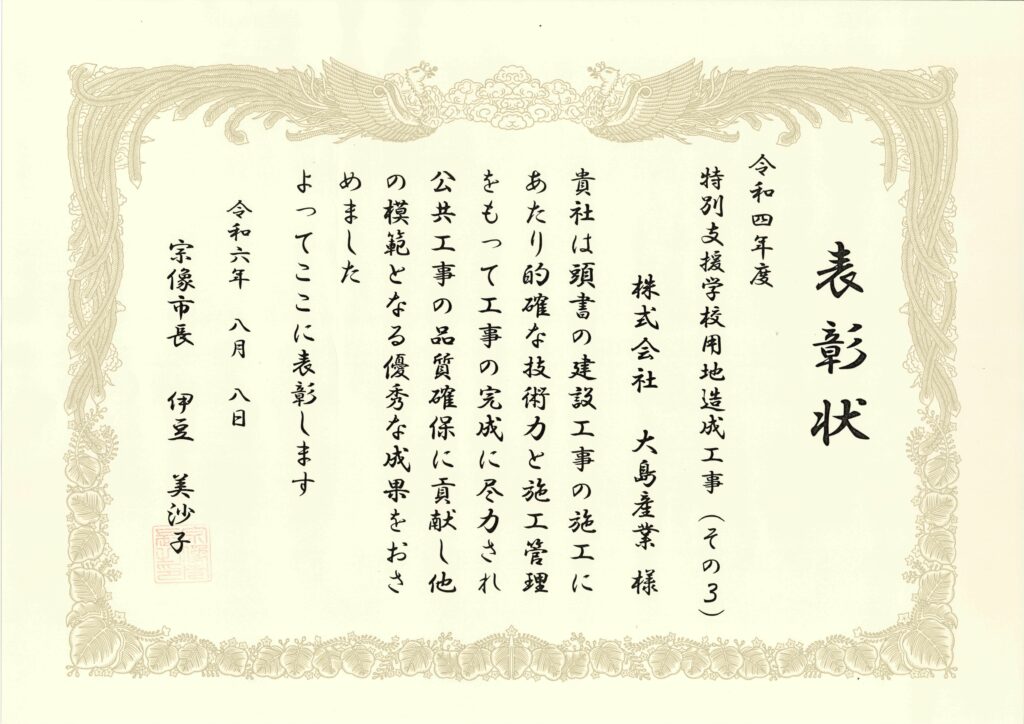 表彰状
令和四年度
特別支援学校用地造成工事（その３）
株式会社　大島産業　様
貴社は頭書の建設工事の施工に
あたり的確な技術力と施工管理
をもって工事の完成に尽力され
公共工事の品質確保に貢献し他
の模範となる優秀な成果をおさ
めました
よってここに表彰します
令和六年　八月　八日
宗像市長　伊豆　美沙子